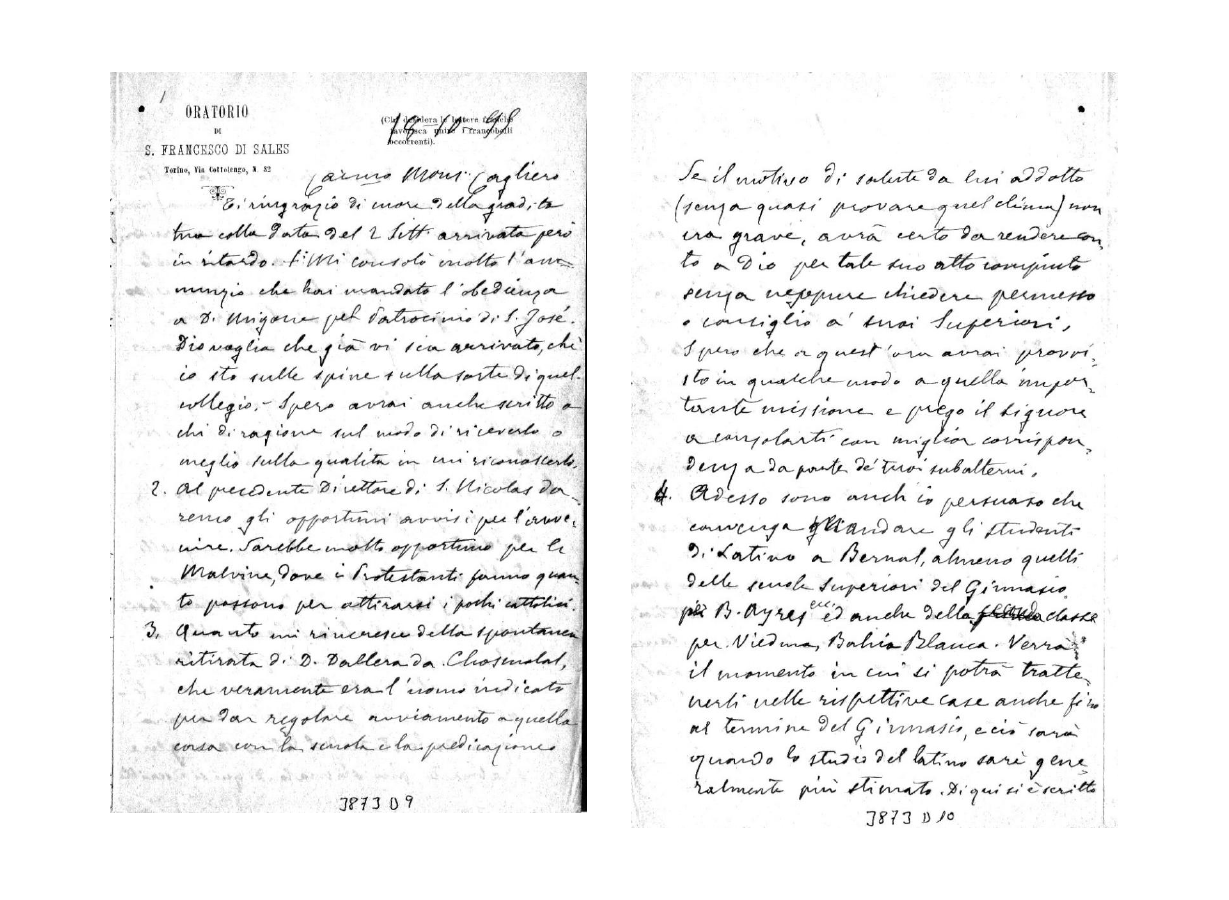 ORATORIO
DI
S. FRANCESCO DI SALES
Torino, Via Cottolengo, N. 32
(Chi desidera le lettere
favorisca unire i francobolli
occorrenti).
Carmo Mons. Cagliero
Ti ringrazio di cuore della gradita
tua colla data del 2 Sett arrivata però
in ritardo. Mi consolò molto l'an=
nunzio che hai mandato l'obedienza
a D. Migone pel Patrocinio di S. José.
Dio voglia che già vi sia arrivato, chè
io sto sulle spine sulla sorte di quel
collegio. - Spero avrai anche scritto a
chi di ragione sul modo di riceverlo o
meglio sulla qualità in cui riconoscerlo.
2. Al precedente Direttore di S. Nicolas da-
remo gli opportuni avvisi per l'avve-
nire. Sarebbe molto opportuno per le
Malvine, dove i Protestanti fanno quan-
to possono per attirarsi i pochi cattolici.
3. Quanto mi rincresce della spontanea
ritirata di D. Dallera da Chosmalal,
che veramente era l'uomo indicato
per dar regolare avviamento a quella
casa con la scuola e la predicazione
3873 D 9
Se il motivo di salute da lui addotto
(senza quasi provare quel clima) non
era grave, avrà certo da rendere con
to a Dio per tale suo atto compiuto
senza neppure chiedere permesso
o consiglio a' suoi Superiori.
Spero che a quest'ora avrai provvi-
sto in qualche modo a quella impor-
tante missione e prego il Signore
a consolarti con miglior corrispon-
denza da parte de' tuoi subalterni.
4. Adesso sono anch'io persuaso che
convenga mandare gli studenti
di Latino a Bernal, almeno quelli
delle scuole superiori del Ginnasio
per B. Ayres ecc. ed anche della classe
per Viedma, Bahia Blanca. Verrà
il momento in cui si potrà tratte-
nerli nelle rispettive case anche fino
al termine del Ginnasio, e ciò sarà
quando lo studio del latino sarà gene-
ralmente più stimato. Di qui si è scritto
3873 D 10